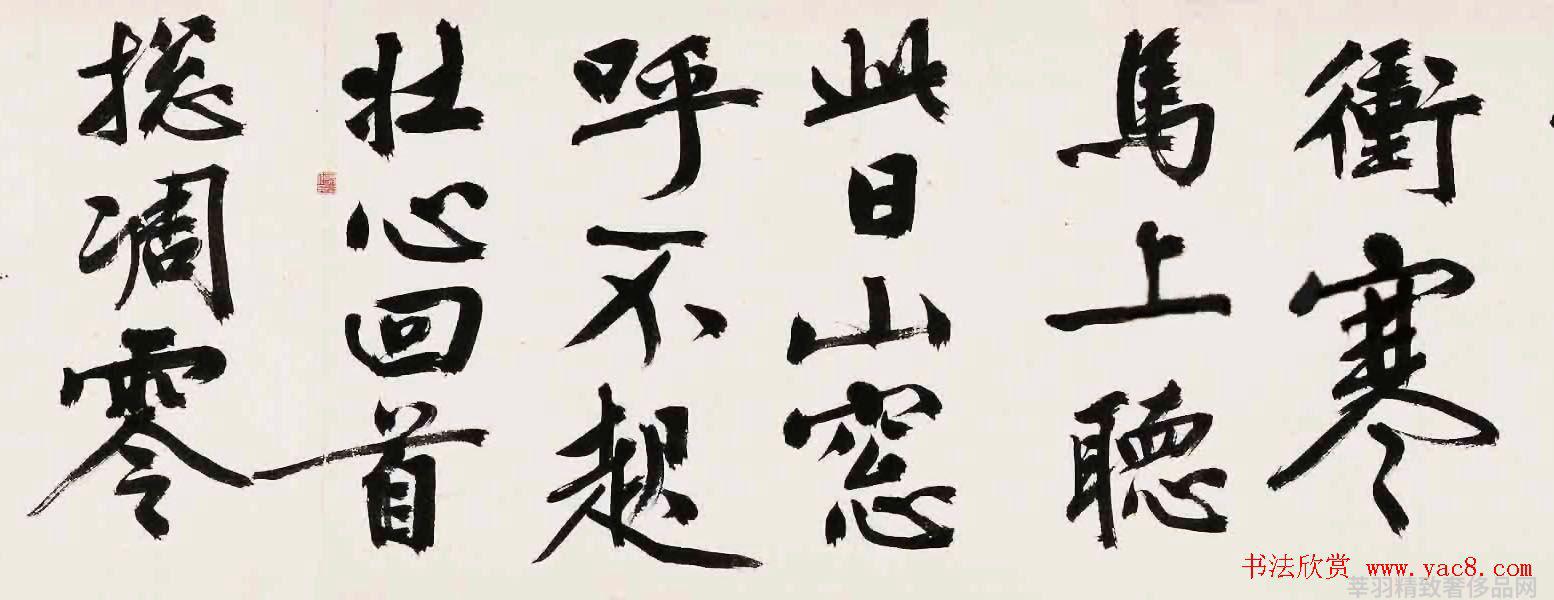 衝寒
馬上聽
此日山窓
呼不起
壮心回首
揔凋零
书法欣赏 www.yac8.com
莘羽精致奢侈品网